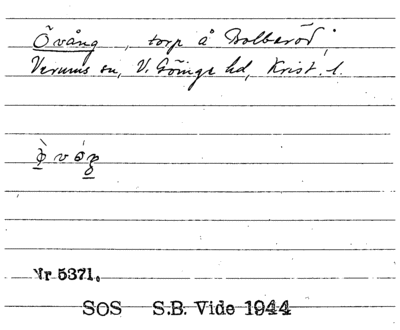 Övång, torp å Bolberöd,
Verums sn, V. Göinge hd, Krist. l.
Nr 5371.
SOS S.B. Vide 1944